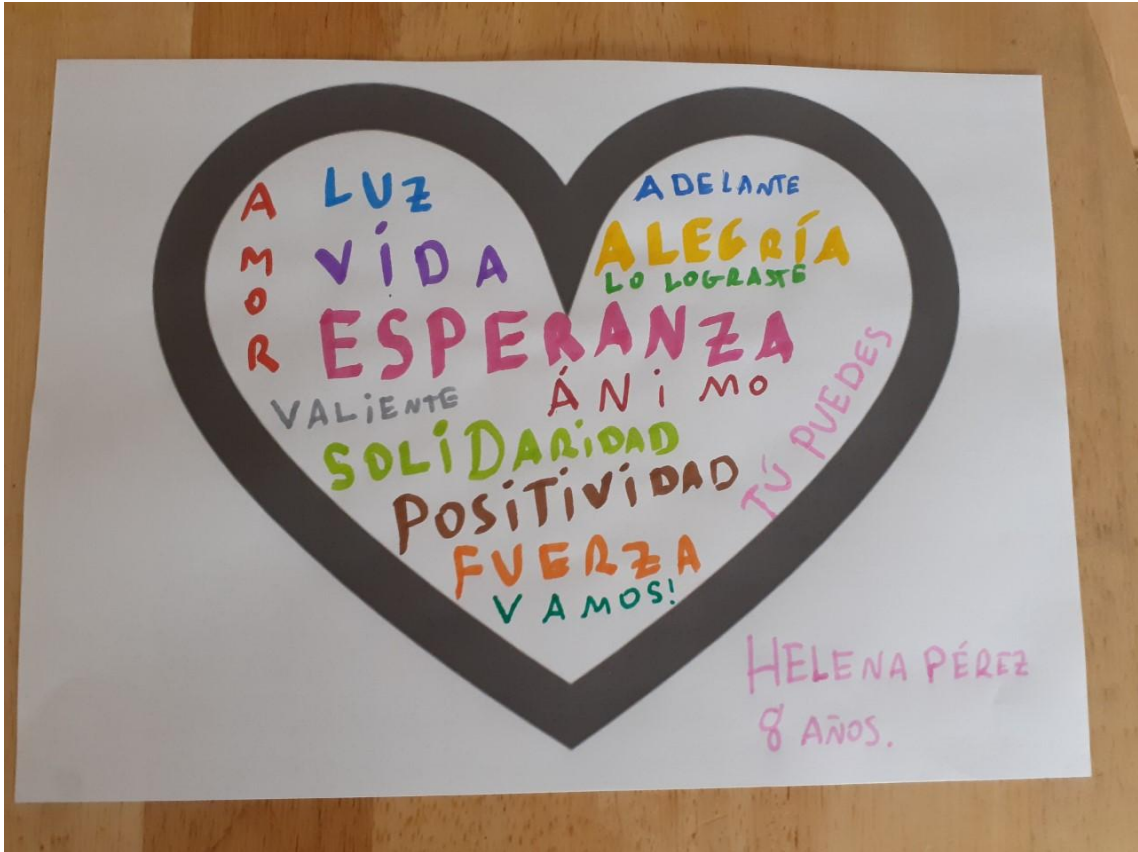 AMOR
LUZ
VIDA
ADELANTE
ALEGRÍA
LO LOGRASTE
ESPERANZA
VALIENTE
ÁNIMO
SOLIDARIDAD
POSITIVIDAD
TÚ PUEDES
FUERZA
VAMOS!
HELENA PÉREZ
8 AÑOS.